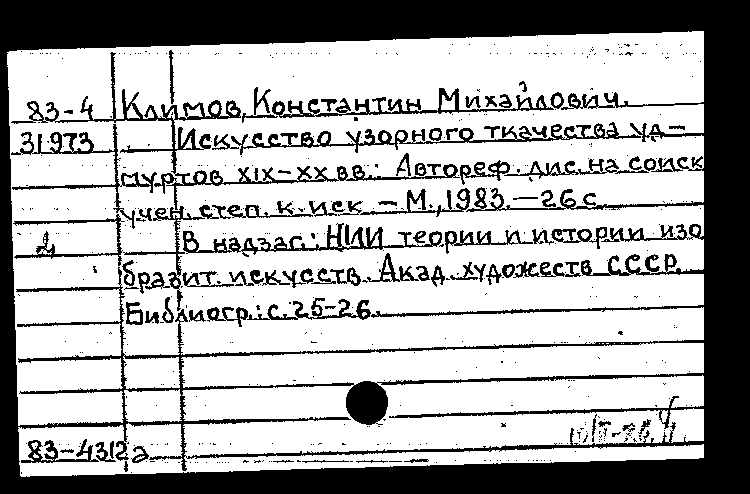 83-4 Климов, Константин Михайлович.
31973 Искусство узорного ткачества уд-
муртов XIX-XX вв.: Автореф. дис. на соиск
учен. степ. к. иск. - М., 1983. - 26 с.
В надзаг.: НИИ теории и истории изо
бразит. искусств. Акад. художеств СССР.
Библиогр.: с. 25-26.
83-4312а